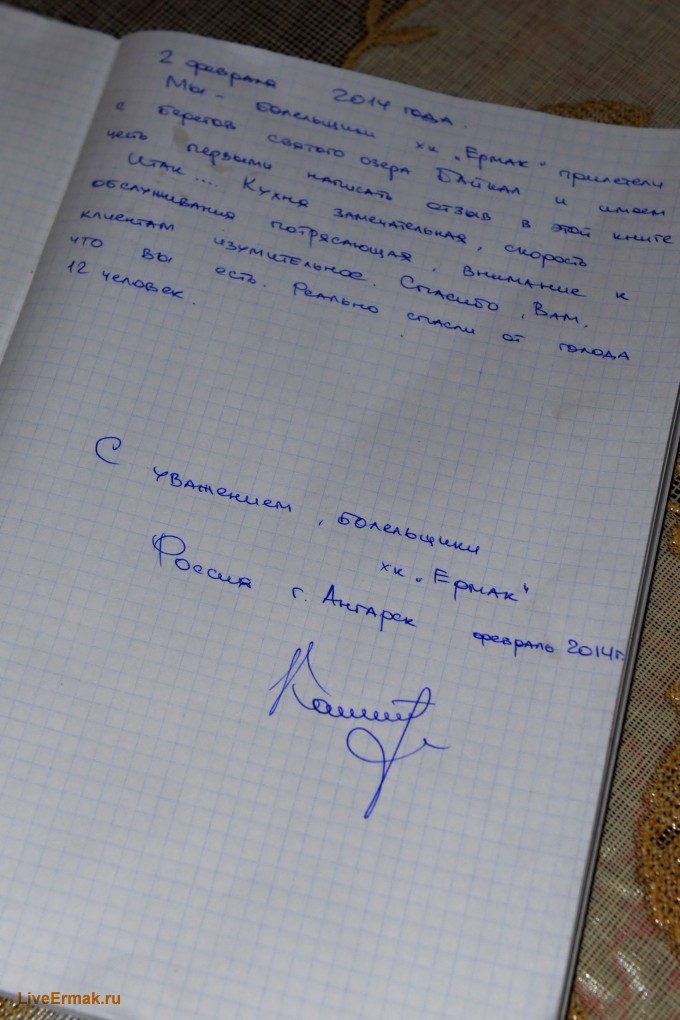 2 февраля 2014 года.
Мы - болельщики хк „Ермак" прилетели
с берегов святого озера Байкал и имеем
честь первыми написать отзыв в этой книге
Итак.... Кухня замечательная, скорость
обслуживания потрясающая, внимание к
клиентам изумительное. Спасибо, Вам,
что вы есть. Реально спасли от голода
12 человек.
С уважением, болельщики
хк „Ермак"
Россия г. Ангарск февраль 2014г.
LiveErmak.ru